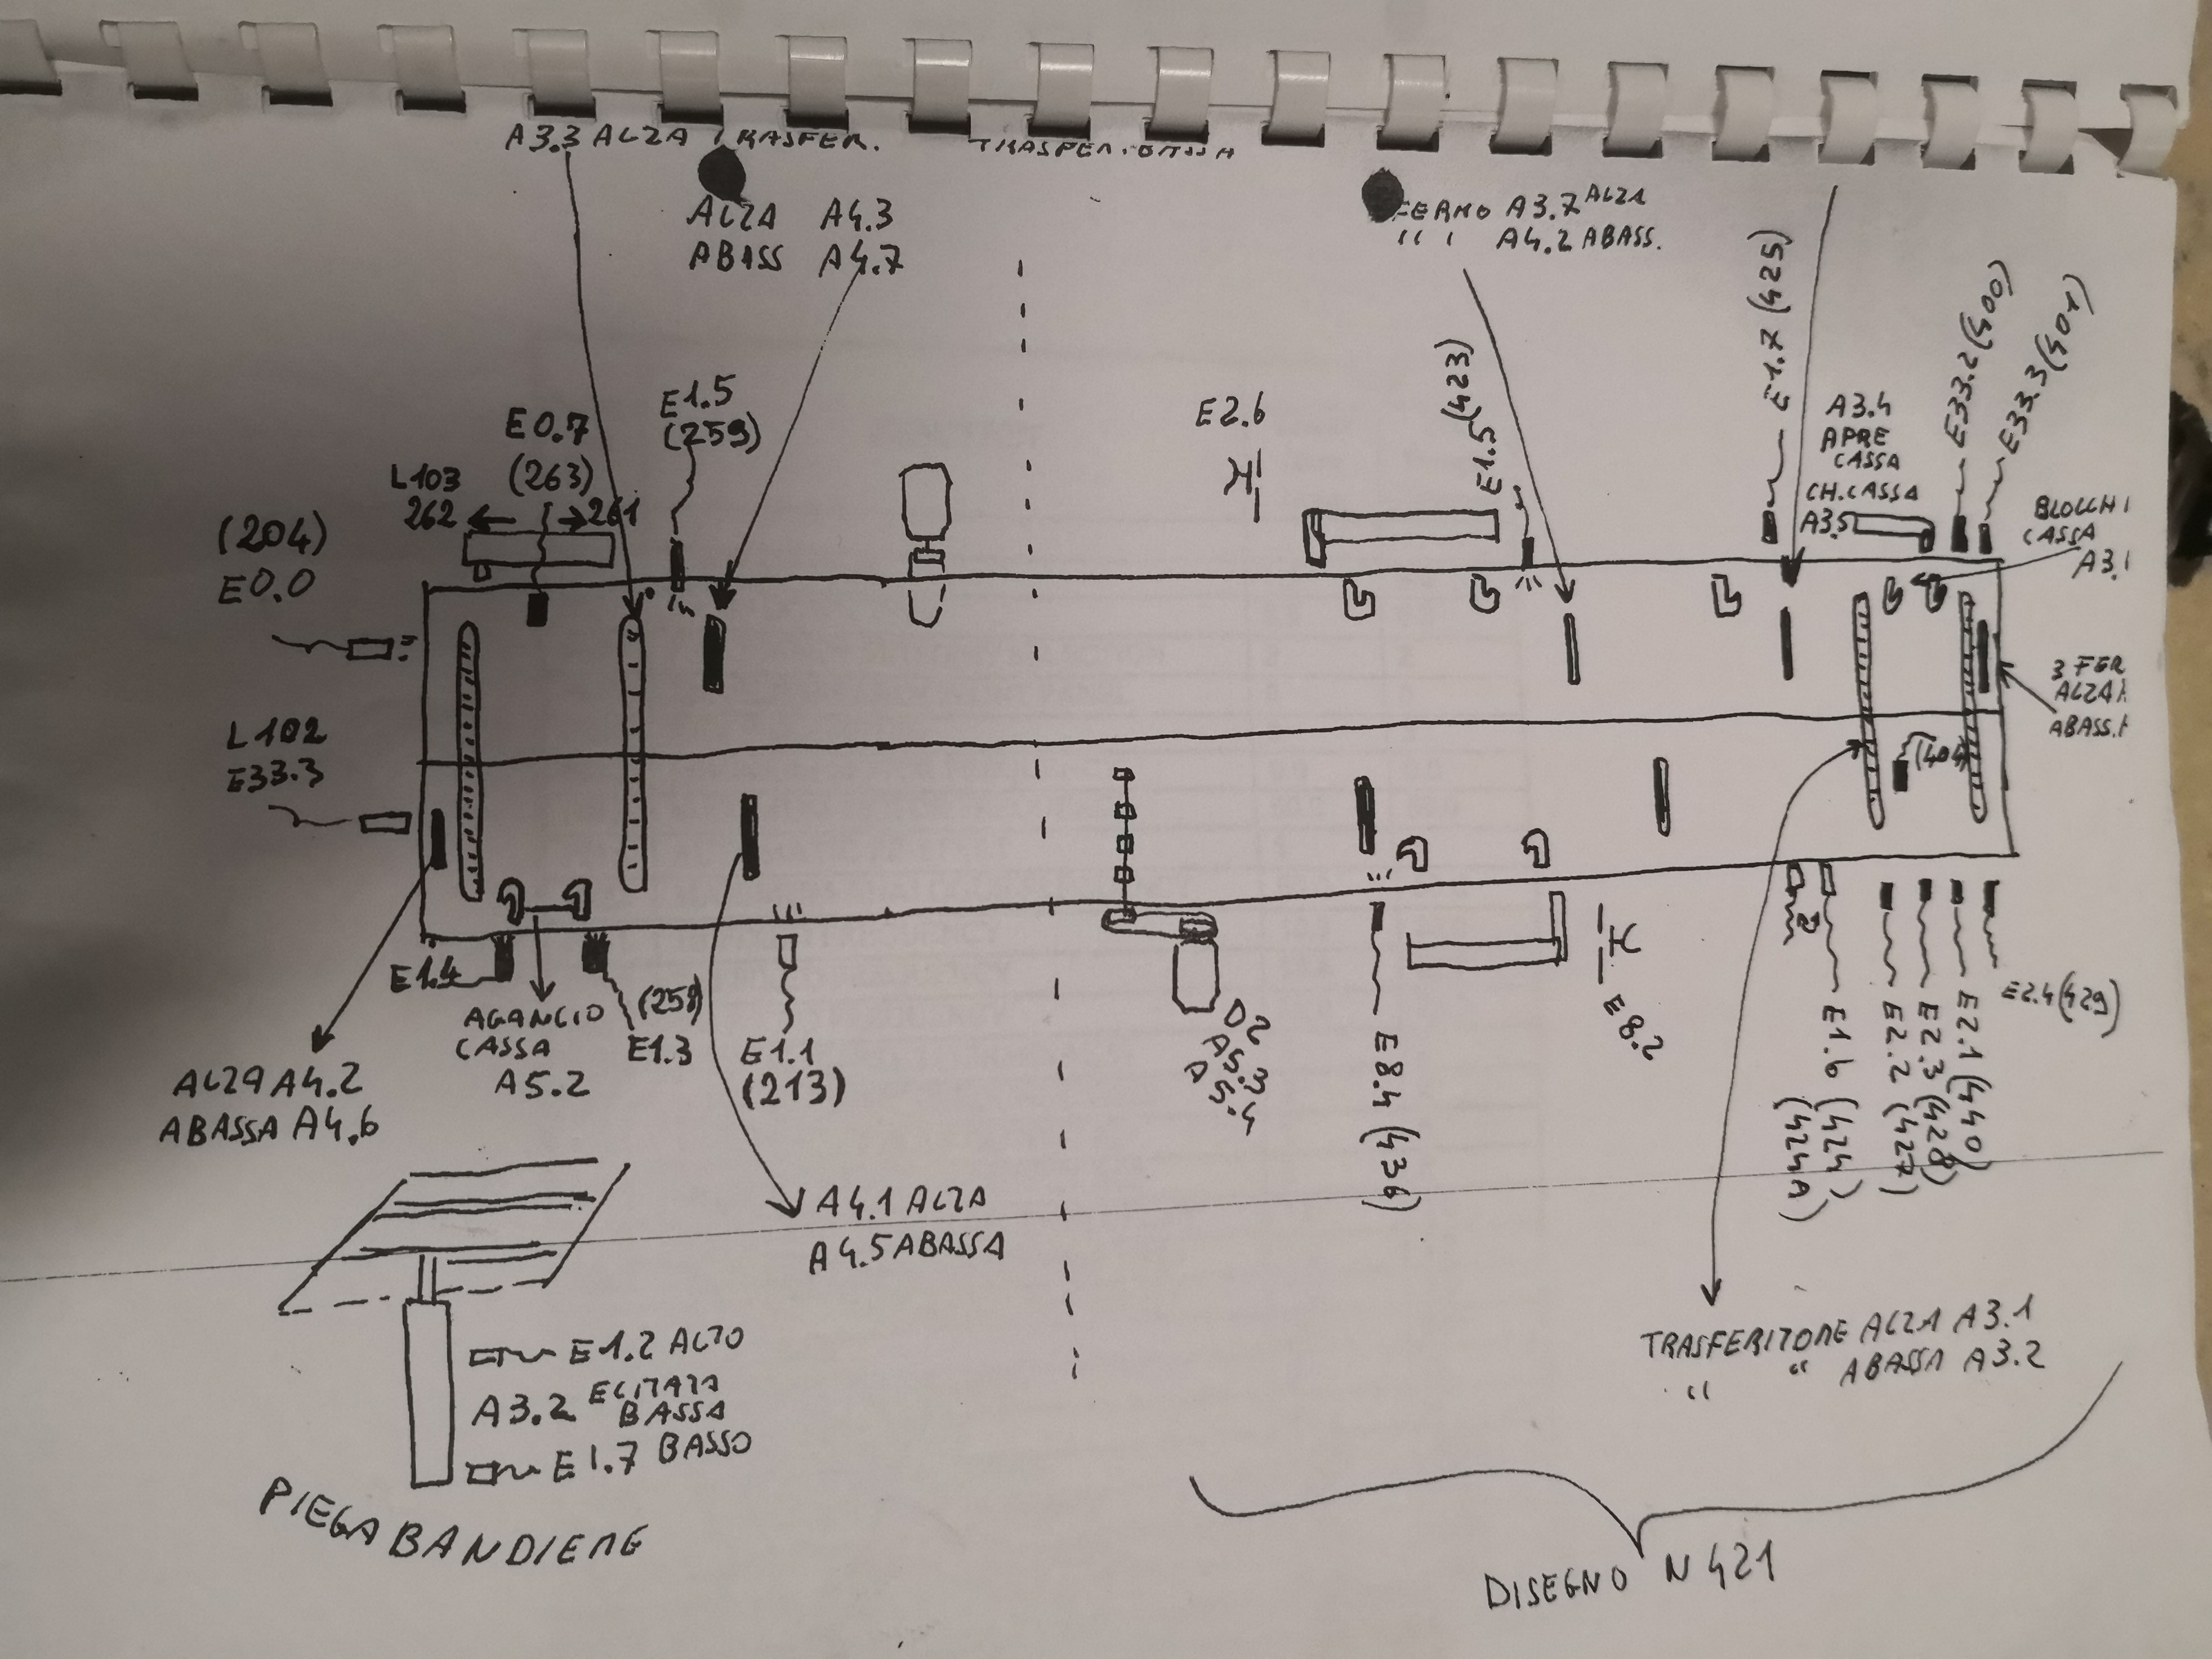 A3.3 ALZA TRASFER.
ALZA A4.3
ABASS A4.7
FERMO A3.7 ALZA
" " A4.2 ABASS.
E1.7 (425)
E33.2 (400)
E33.3 (401)
E1.5
(259)
E0.7
(263)
L103
262
261
(204)
E0.0
E2.6
E1.5 (423)
A3.4
APRE
CASSA
CH.CASSA
A3.5
BLOCCHI
CASSA
A3.1
3 FER
ALZA
ABASS.
L102
E33.3
(404)
E1.4
AGANCIO
CASSA
A5.2
E1.3
E1.1
(213)
D2
A5.3
A5.4
E8.4 (436)
E8.2
(424A)
E1.6 (424)
E2.2 (427)
E2.3 (428)
E2.1 (440)
E2.4 (429)
ALZA A4.2
ABASSA A4.6
A4.1 ALZA
A4.5 ABASSA
TRASFERITORE ALZA A3.1
" " ABASSA A3.2
E1.2 ALTO
A3.2
BASSA
E1.7 BASSO
PIEGABANDIERE
DISEGNO N 421